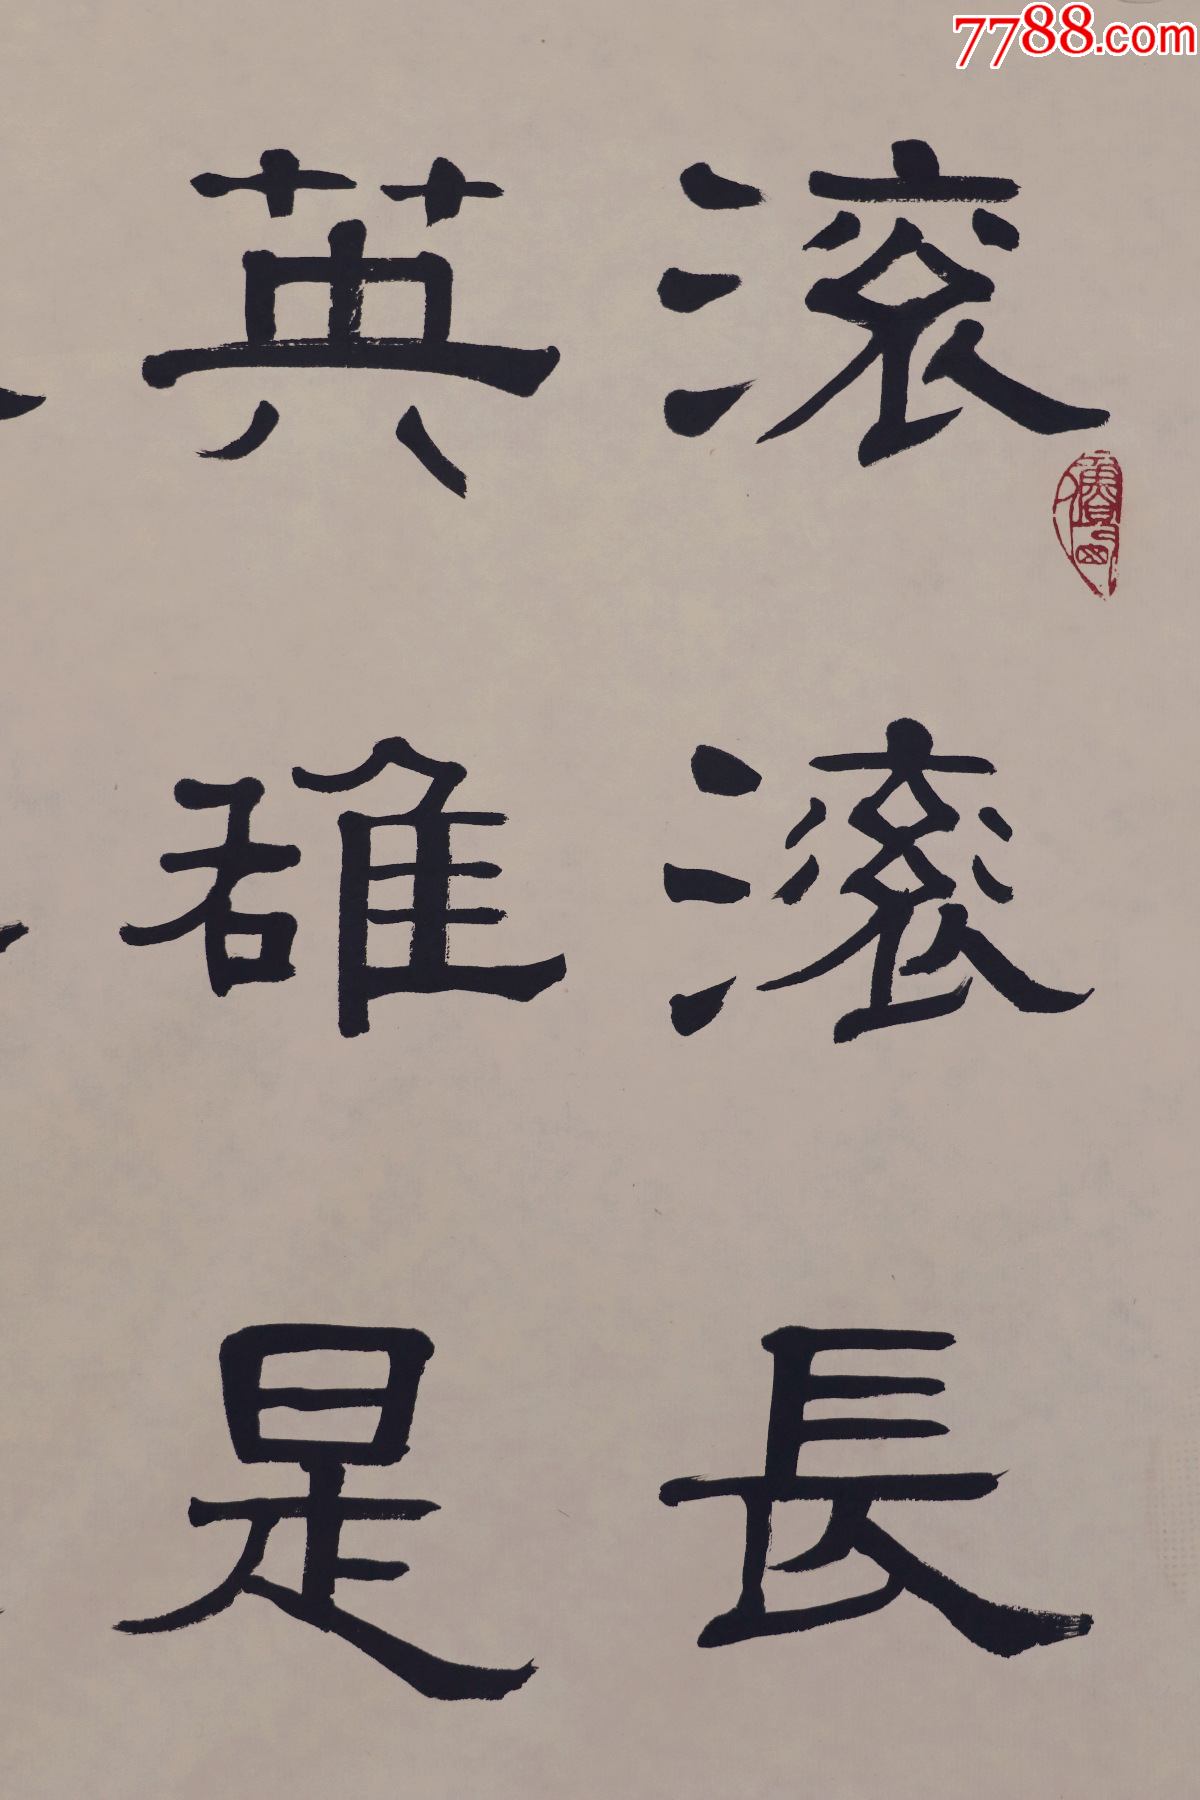 7788.com
滚滚長
英雄是